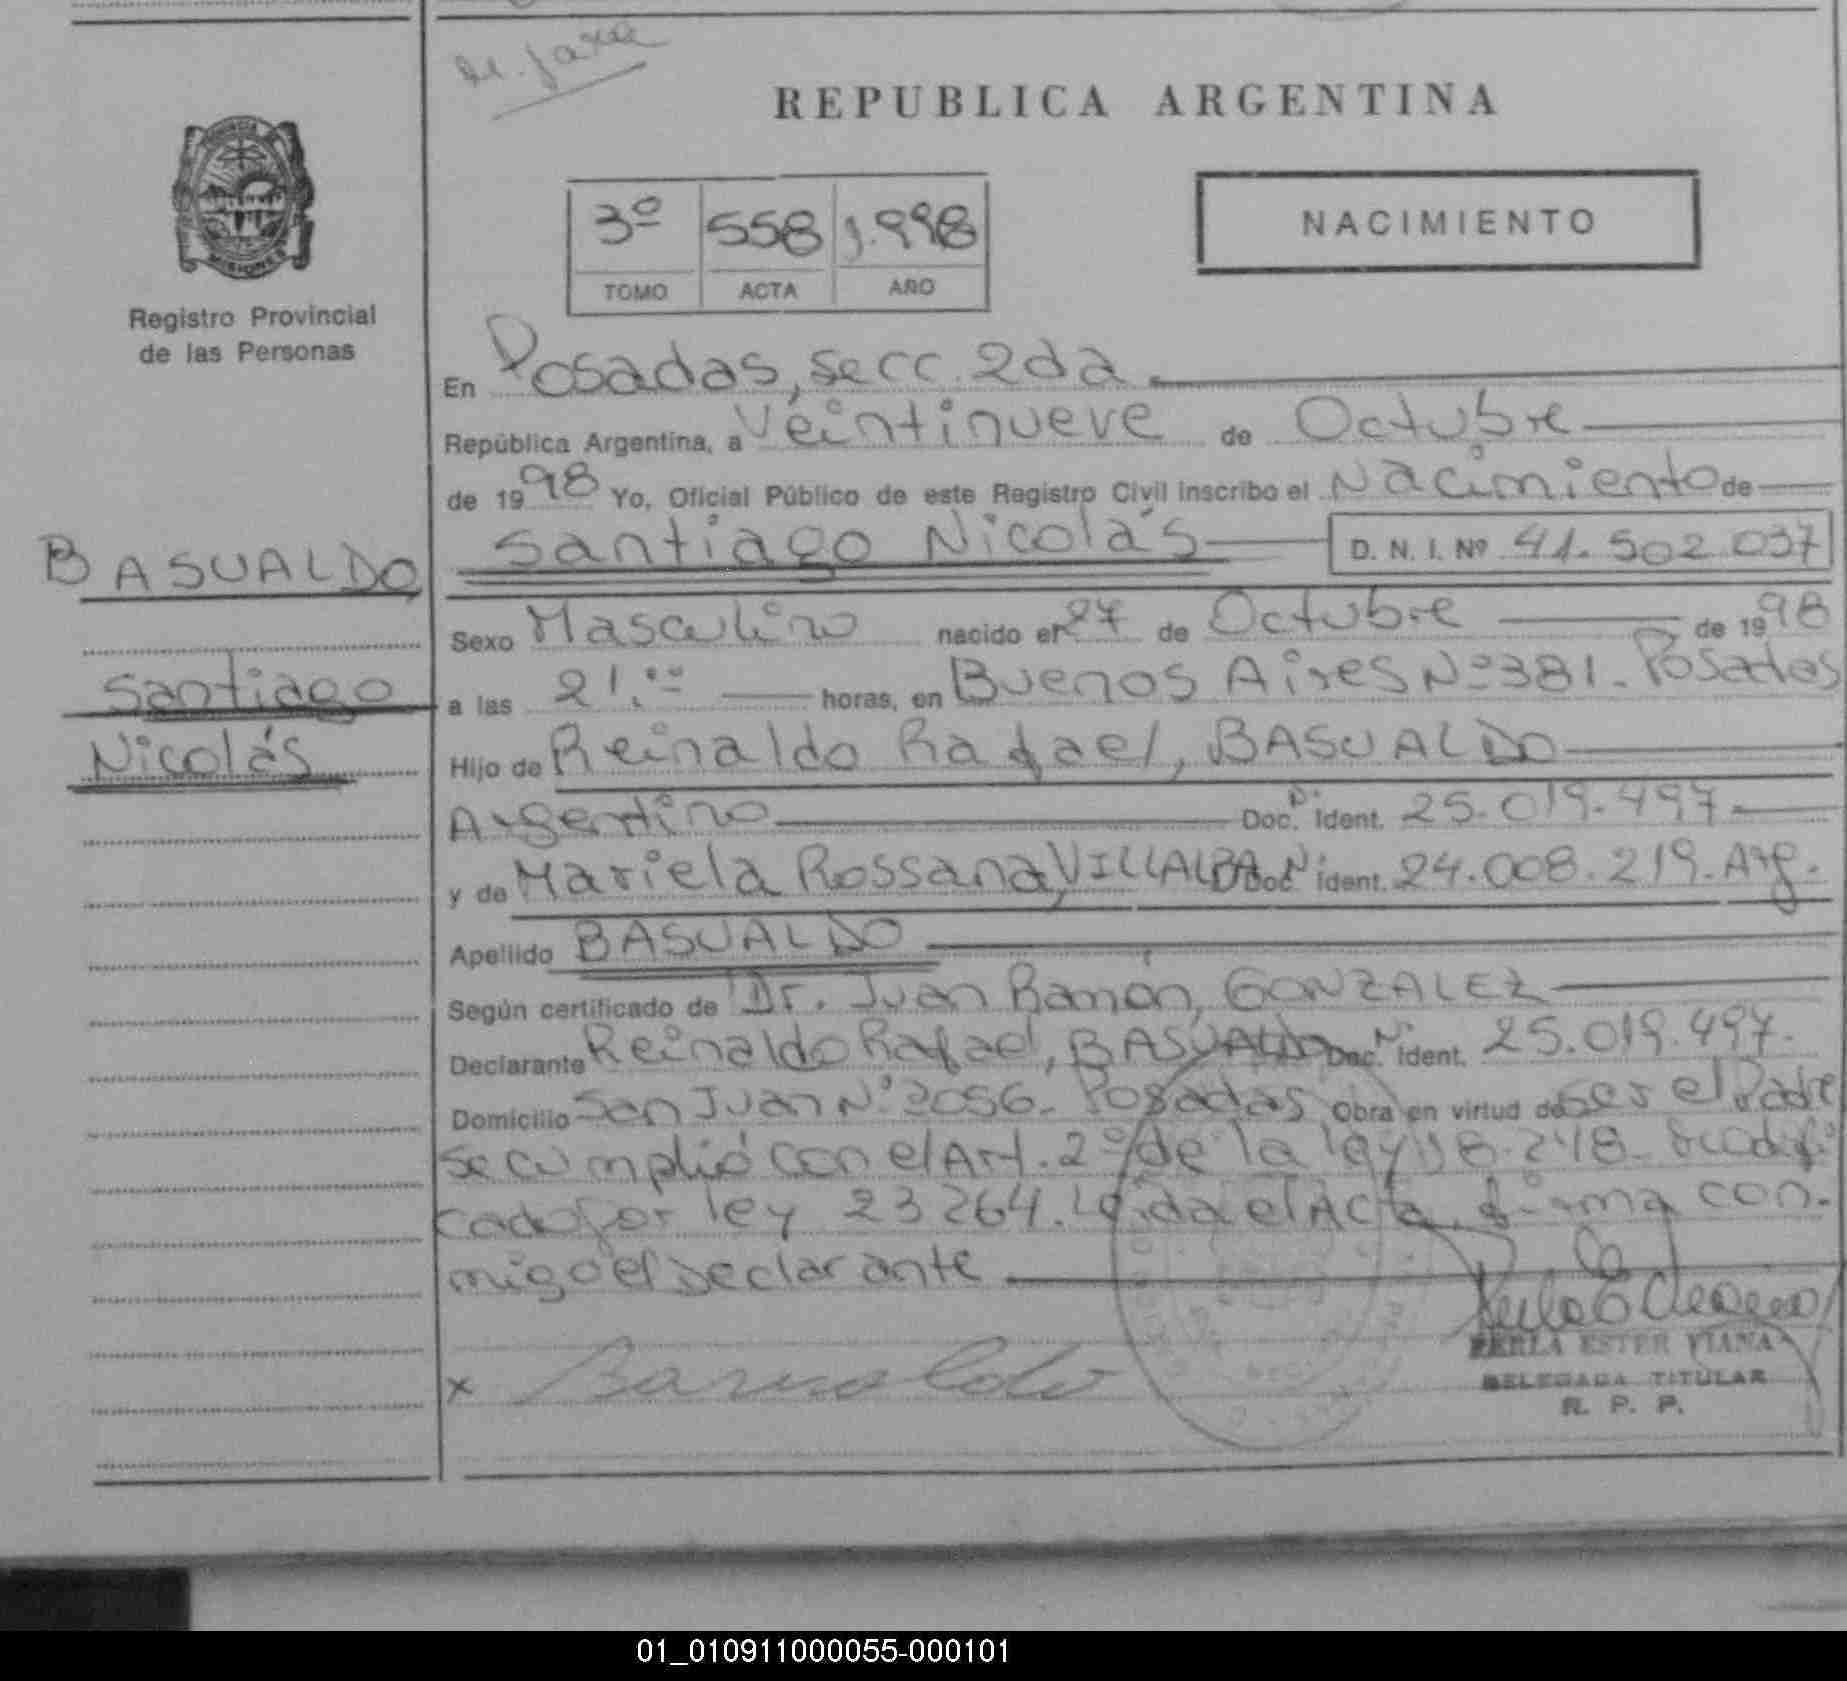 REPUBLICA ARGENTINA
PROVINCIA DE
MISIONES
Registro Provincial
de las Personas
3º 558 1.998
TOMO ACTA AÑO
NACIMIENTO
En Posadas, secc. 2da.
República Argentina, a Veintinueve de Octubre
de 1998 Yo, Oficial Público de este Registro Civil inscribo el Nacimiento de
Santiago Nicolás D. N. I. Nº 41.502.037
BASUALDO
Santiago
Nicolás
Sexo Masculino nacido el 27 de Octubre de 1998
a las 21.ºº horas, en Buenos Aires Nº 381. Posadas
Hijo de Reinaldo Rafael, BASUALDO
Argentino Doc. Nº Ident. 25.019.497
y de Mariela Rossana, VILLALBA Doc. Nº Ident. 24.008.219. Arg.
Apellido BASUALDO
Según certificado de Dr. Juan Ramón, GONZALEZ
Declarante Reinaldo Rafael, BASUALDO Doc. Nº Ident. 25.019.497.
Domicilio San Juan Nº 2056. Posadas Obra en virtud de ser el Padre
se cumplió con el Art. 2º de la ley 18.248. modifi
cado por ley 23264. Leida el Acta, firma con-
migo el declarante
x Basualdo
PERLA ESTER VIANA
DELEGADA TITULAR
R. P. P.
01_010911000055-000101